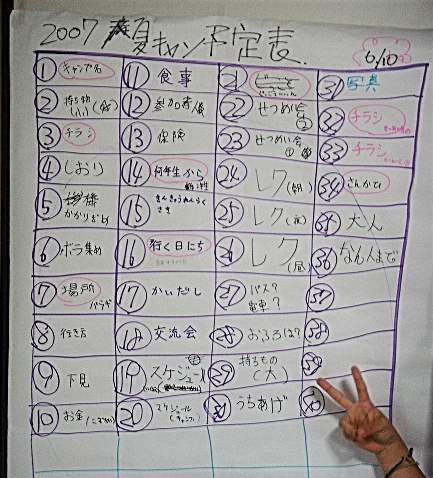 2007 夏キャンプ予定表
6/10
① キャンプ名
② 持ち物
③ チラシ
④ しおり
⑤ かかりぎめ
⑥ ボラ集め
⑦ 場所
⑧ 行き方
⑨ 下見
⑩ お金
⑪ 食事
⑫ 参加者
⑬ 保険
⑭ 何年生から
⑮ きんきゅうれんらく
さき
⑯ 行く日にち
⑰ かいだし
⑱ 交流会
⑲ スケジュール
⑳ スケジュール
(キャンプ)
21
22 せつめい会
②
23 せつめい会
①
24 レク(朝)
25 レク(夜)
26 レク(昼)
27 バス?
電車?
28 おふろは?
29 持ちもの
(大)
30 うちあげ
31 写真
32 チラシ
33 チラシ
34 さんかひ
35 大人
36 なん人まで
37
38
39
40